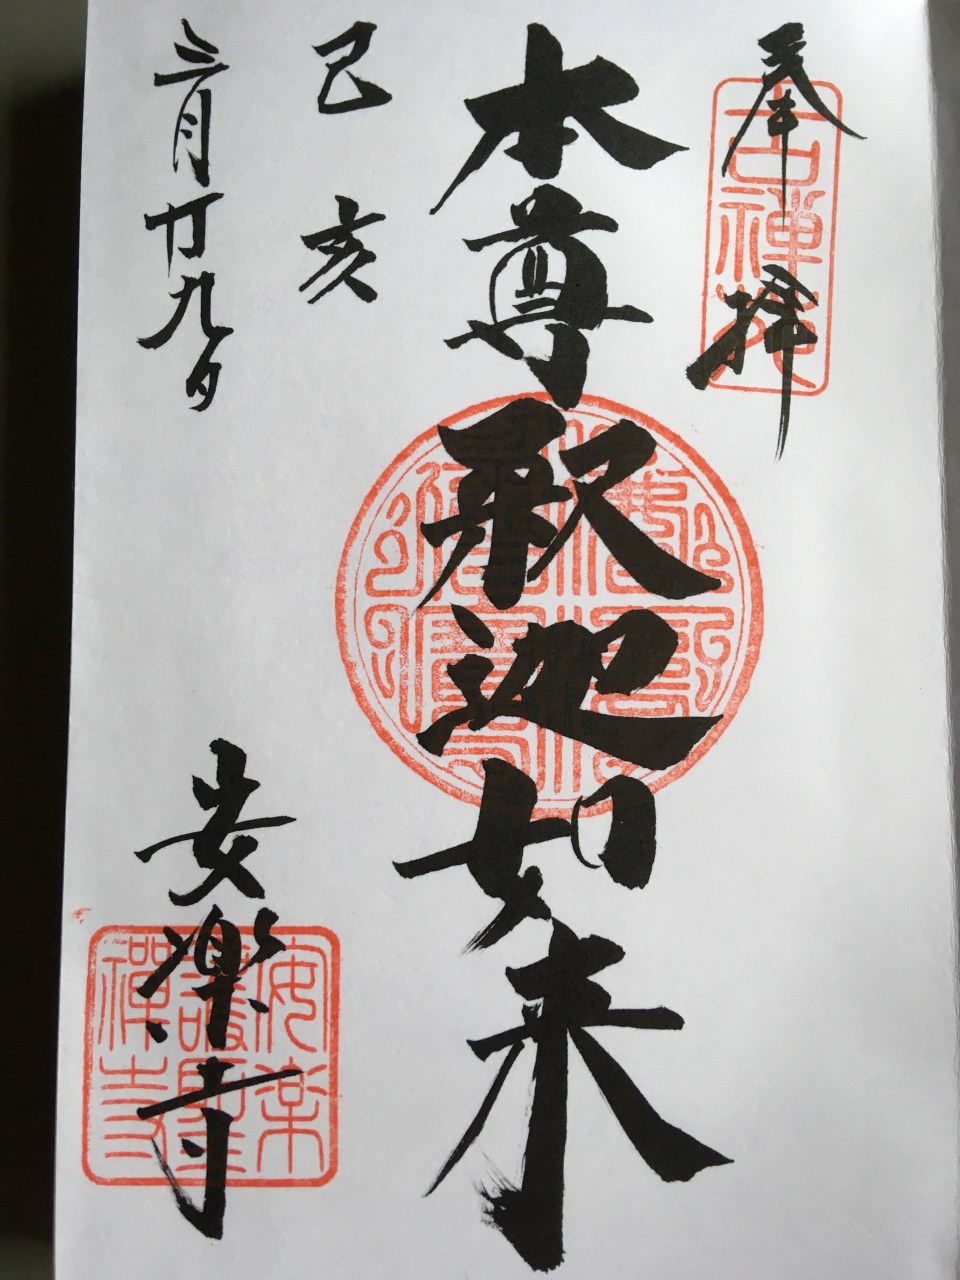 奉拝
古禅
本尊釈迦如来
己亥
三月廿九日
安楽寺
安楽
護聖
禅寺